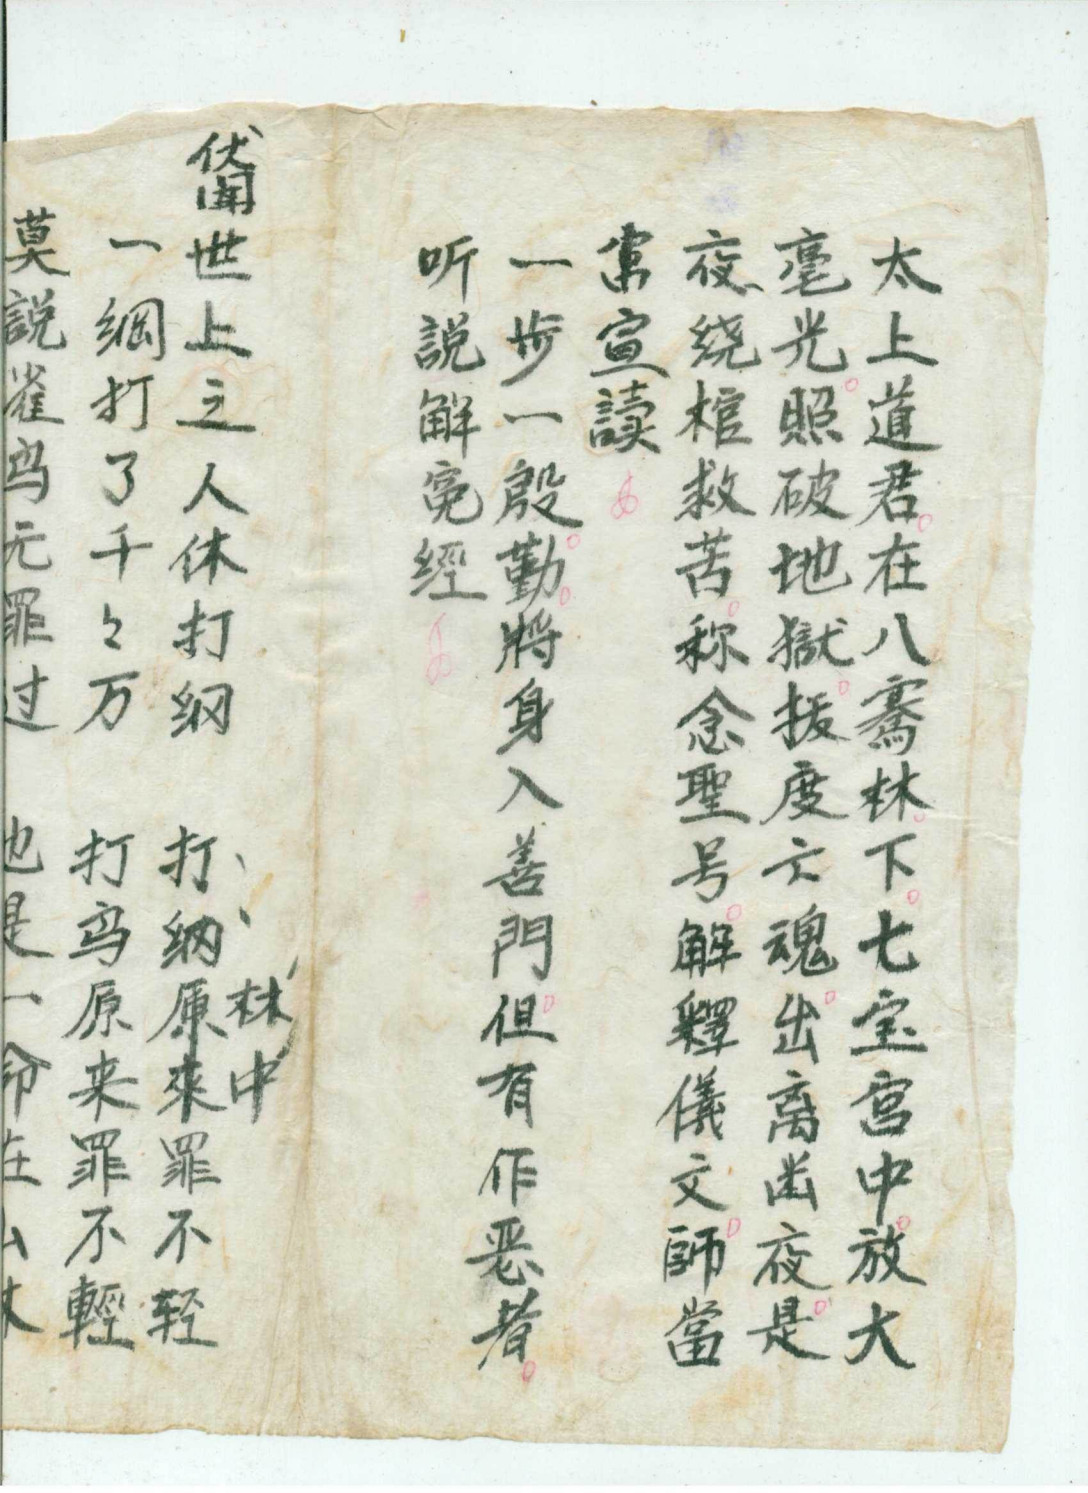 太上道君在八騫林下七宝宫中放大
毫光照破地獄拔度亡魂出离幽夜是
夜绕棺救苦称念聖号解釋儀文師當
當宣讀
一步一殷勤將身入善門但有作恶者
听説解冤經
伏聞世上之人休打纲 打纲原來罪不轻
林中
一綱打了千々万 打鸟原来罪不輕
莫説雀鸟无罪过 也是一命在山林